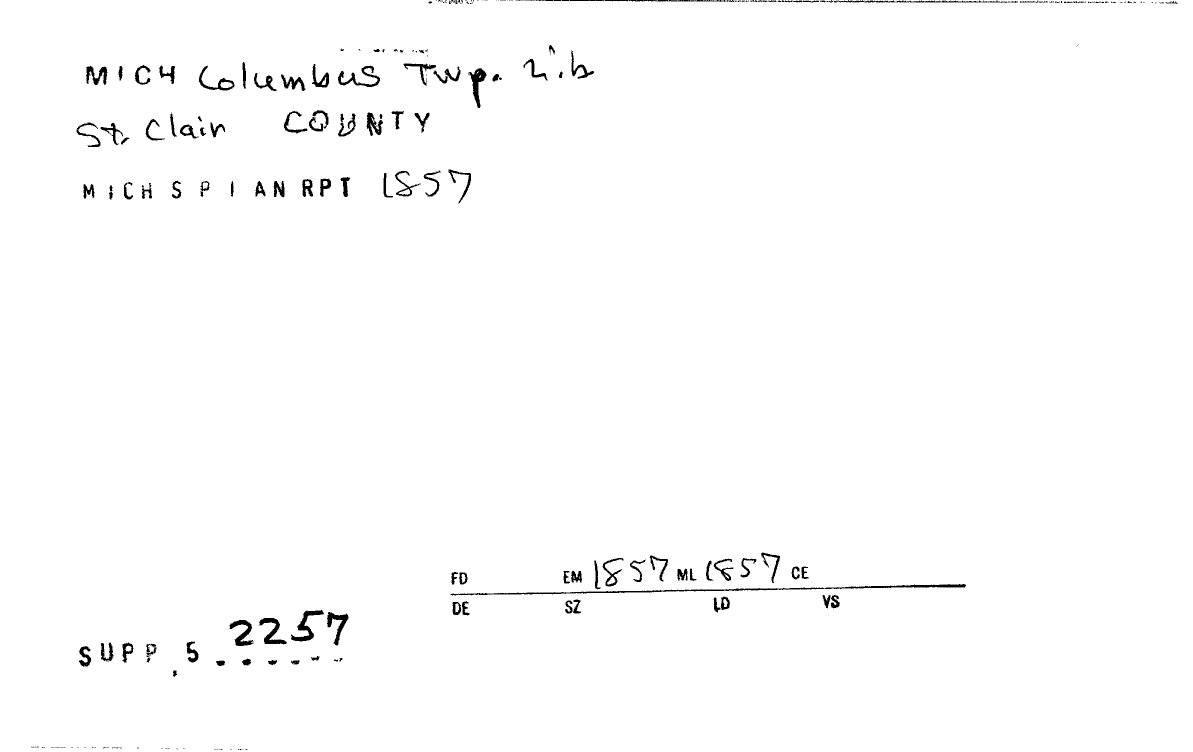 MICH Columbus Twp. Lib
St. Clair COUNTY
MICH S P I AN RPT 1857
FD EM 1857 ML 1857 CE
DE SZ LD VS
SUPP. 5 2257